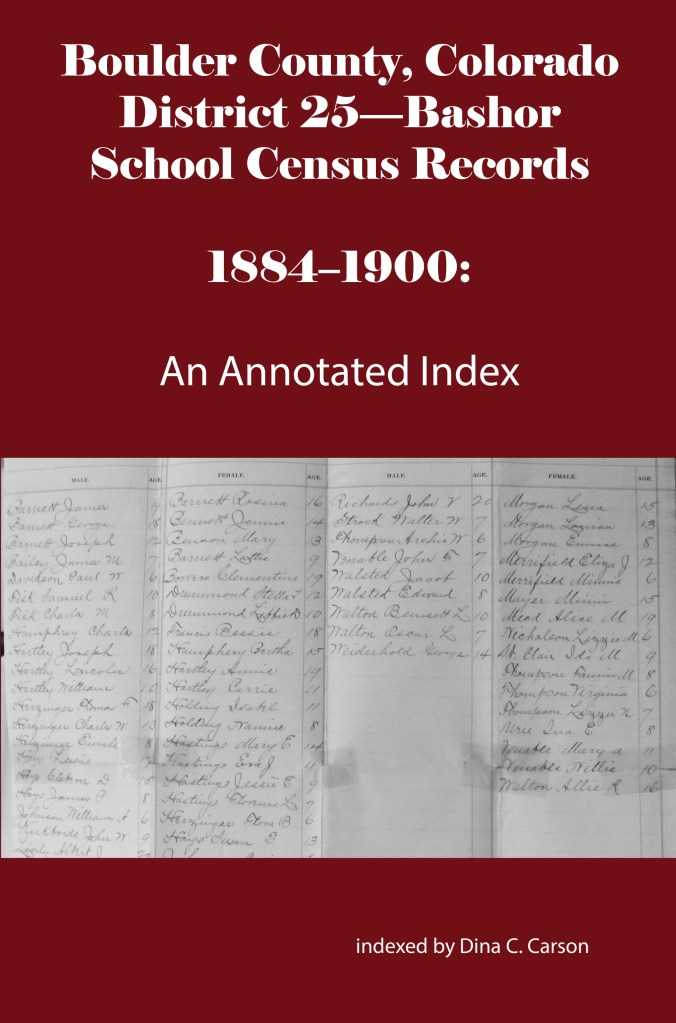 Boulder County, Colorado
District 25—Bashor
School Census Records
1884–1900:
An Annotated Index
MALE. AGE. FEMALE. AGE. MALE. AGE. FEMALE. AGE.
Barnett James 9 Barnett Rosina 16 Richards John V 20 Morgan Leua 15
Barnett George 18 Bennett Jennie 14 Strock Walter W 7 Morgan Louisa 13
Barnett Joseph 12 Benson Mary 13 Thompson Archie W 6 Morgan Eunice 8
Bailey James M Barnett Lottie 9 Venable John F 7 Merrifield Eliza J 12
Davidson Paul W 6 Clementine 19 Walsted Jacob 10 Merrifield Minnie 6
Samuel R 10 Drummond Stella 12 Walsted Edward 8 Mayer Minnie 15
Charles M 8 Drummond 10 Walton Bennett L 10 Mead Alice M 19
Humphrey Charles 12 Francis Bessie 18 Walton Oscar L 7 Nicholson Lizzie M 6
Hartley Joseph 18 Humphery Bertha 15 Weiderhold George 14 St. Clair Ida M 9
Hartley Lincoln 16 Hartley Annie 19 Thompson Fannie M 8
Hartley William 10 Hartley Carrie 11 Thompson Virginia 6
Herzinger Thomas F 18 Holding Isabel 11 Thompson Lizzie N 7
Herzinger Charles W 13 Holding Nannie 8 Wrie Ina E 8
Herzinger 8 Hastings Mary E 14 Venable Mary A 11
Hays Lewis 17 Hastings Eva J 11 Venable Nellie 10
Hays D 15 Hastings Jessie E 9 Walton Allie R 16
Hays James P 8 Hastings Florence L 7
Johnson William A 6 Herzinger Flora B 6
Kirkbride John W 9 Hays Susan E 13
Lively Albert J 20
indexed by Dina C. Carson